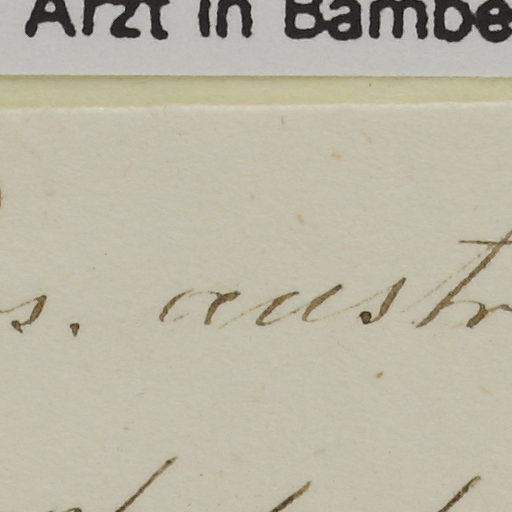 Arzt in Bambe
s. austr